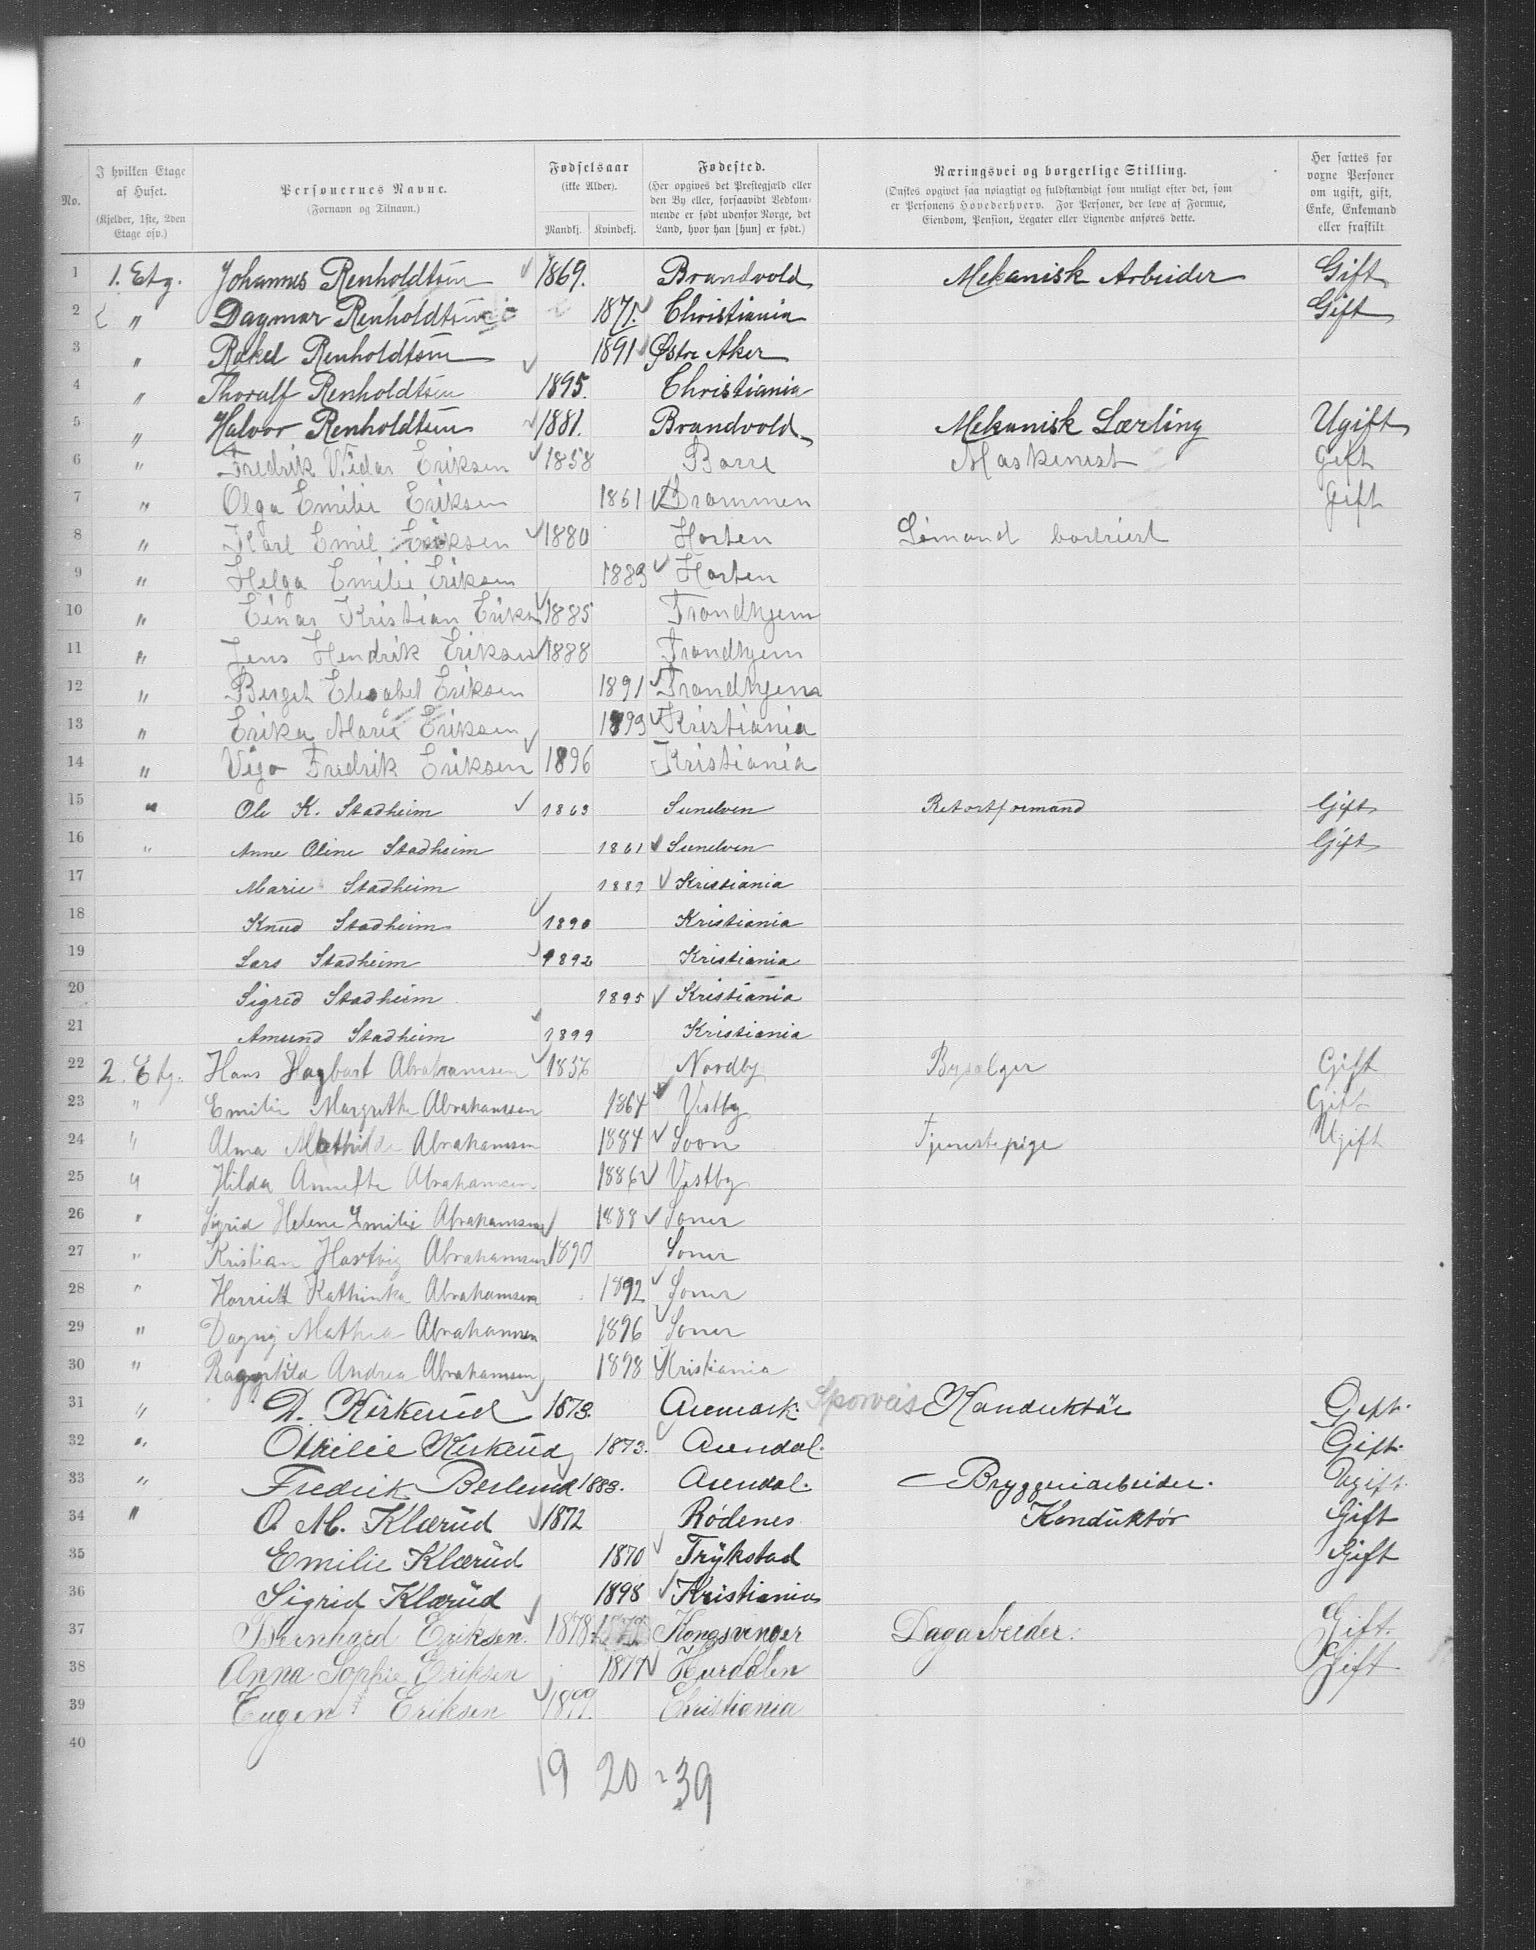 No.
I hvilken Etage af Huset.
(Kjelder, 1ste, 2den Etage osv.)
Personernes Navne.
(Fornavn og Tilnavn.)
Fødselsaar
(ikke Alder).
Mandkj. Kvindekj.
Fødested.
(Her opgives det Prestegjæld eller den By eller, forsaavidt Vedkommende er født udenfor Norge, det Land, hvor han [hun] er født.)
Næringsvei og borgerlige Stilling.
(Ønskes opgivet saa nøiagtigt og fuldstændigt som muligt efter det, som er Personens Hovederhverv. For Personer, der leve af Formue, Eiendom, Pension, Legater eller Lignende anføres dette.
Her sættes for voxne Personer om ugift, gift, Enke, Enkemand eller fraskilt
1 1. Etg. Johannes Renholdtsen 1869. Brandvold Mekanisk Arbeider Gift
2 " Dagmar Renholdtsen 1871. Christiania Gift
3 " Rakel Renholdtsen 1891 Østre Aker
4 " Thoralf Renholdtsen 1895. Christiania
5 " Halvor Renholdtsen 1881. Brandvold Mekanisk Lærling Ugift
6 " Fredrik Vidar Eriksen 1858 Borre Maskinist Gift
7 " Olga Emilie Eriksen 1861 Drammen Gift
8 " Karl Emil Eriksen 1880 Horten Sømand bortreist
9 " Helga Emilie Eriksen 1883 Horten
10 " Einar Kristian Eriksn 1885 Trondhjem
11 " Jens Hendrik Eriksen 1888 Trondhjem
12 " Berget Elesabet Eriksen 1891 Trondhjem
13 " Erika Marie Eriksen 1893 Kristiania
14 " Vigo Fredrik Eriksen 1896 Kristiania
15 " Ole K. Stadheim 1863 Sunelven Retortformand Gift
16 " Anne Oline Stadheim 1861 Sunelven Gift
17 Marie Stadheim 1887 Kristiania
18 Knud Stadheim 1890 Kristiania
19 Lars Stadheim 1892 Kristiania
20 Sigred Stadheim 1895 Kristiania
21 Amund Stadheim 1899 Kristiania
22 2. Etg. Hans Hagbart Abrahamsen 1856 Nordby Bysælger Gift
23 " Emilie Margrethe Abrahamsen 1864 Vestby Gift
24 " Alma Mathilde Abrahamsen 1884 Soon Tjenestepige Ugift
25 " Hilda Annette Abrahamsen 1886 Vestby
26 " Sigrid Helene Emilie Abrahamsen 1888 Soner
27 " Kristian Hartvig Abrahamsen 1890 Soner
28 " Harriet Kathinka Abrahamsen 1892 Soner
29 " Dagny Mathea Abrahamsen 1896 Soner
30 " Ragnhilda Andrea Abrahamsen 1898 Kristiania
31 " D. Kirkerud 1873. Aremark. Sporveis Konduktør Gift.
32 " Othilie Kirkerud 1873. Arendal. Gift.
33 " Fredrik Berlund 1883. Arendal. Bryggeriarbeider. Ugift.
34 " O. M. Klærud 1872 Rødenes Konduktør Gift
35 Emilie Klærud 1870 Trykstad Gift
36 Sigrid Klærud 1898 Kristiania
37 Bernhard Eriksen. 1878 Kongsvinger Dagarbeider. Gift.
38 Anna Sophie Eriksen 1877 Hurdalen Gift
39 Eugen Eriksen 1899. Christiania
40
19 20 = 39